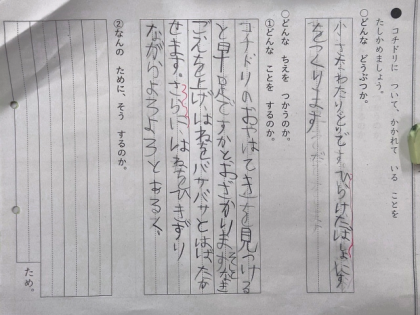 ●コチドリに ついて、かかれて いる ことを
たしかめましょう。
○どんな どうぶつか。
小さなわたりどりです。ひらけたばしょにす
をつくります
○どんな ちえを つかうのか。
①どんな ことを するのか。
コチドリのおやはてきを見つける
と早足ですからとおざかります。なき
ごえを上げ、はねをバサバサとはばたか
せます。さらに、はねをひきずり
ながらよろよろとあるく、
②なんの ために、そう するのか。
ため。